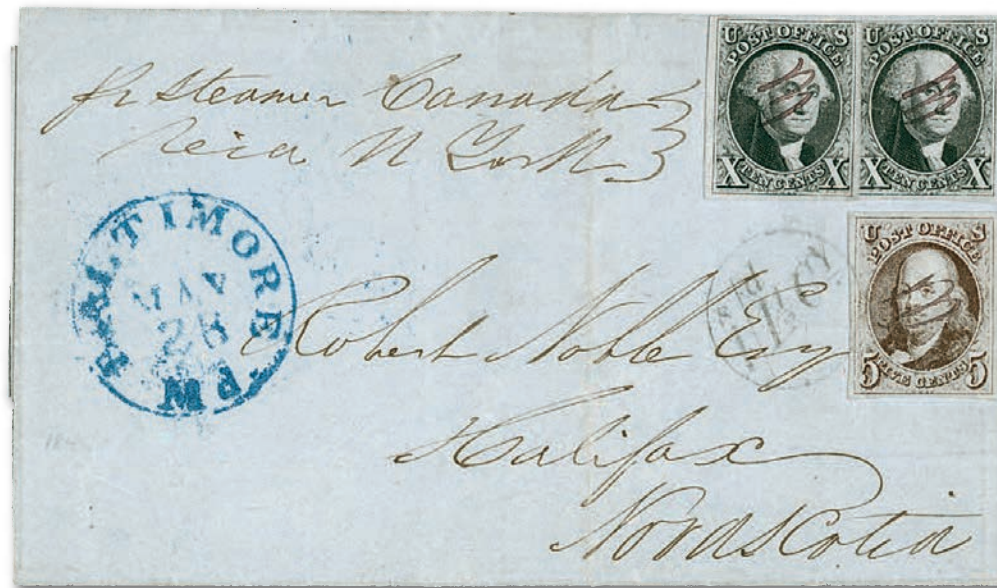 pr Steamer Canada
via N York
U S
POST OFFICE
X TEN CENTS X
U S
POST OFFICE
X TEN CENTS X
BALTIMORE
MAY
28
PM
U S
POST OFFICE
5 FIVE CENTS 5
Robert Noble Esq
Halifax
Nova Scotia